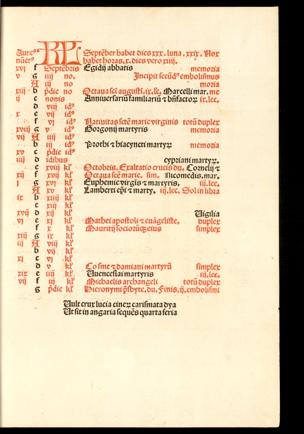 Aureꝰ KL September habet dies xxx. luna. xxix. Nox
nūerꝰ habet horas. x. dies vero xiiij.
xvj f Septēbris Egidij abbatis memoria
v g iiij no. Incipit secūdꝰ embolismus
A iij no. moria
xiij b pdie no Octaua sci augusti. ix. lec. Marcelli mar. me
ij c nonis Anniuersariū familiariū & bn̄factoꝝ ix. lec.
d viij idꝰ
x e vij idꝰ
f vj idꝰ Natiuitas scē marie virginis totū duplex
xviij g v idꝰ Gorgonij martyris memoria
vij A iiij idꝰ
b iij idꝰ Prothi & hiacyncti martyrꝝ memoria
xv c pdie idꝰ
iiij d idibus cypriani martyrꝝ.
e xviij kl' Octobris. Exaltatio crucis du. Cornelij &
xij f xvij kl' Octaua scē marie. sim. Nicomedis. mar.
j g xvj kl' Euphemie virgīs & martyris. iij. lec.
A xv kl' Lamberti epī & marty. iij. lec. Sol in libra
ix b xiiij kl'
c xiij kl'
xvij d xij kl' Vigilia
vj e xj kl' Mathei apostoli & euāgeliste. duplex
f x kl' Mauritij socioꝝqꝫ eius simplex
xiiij g ix kl'
iij A viij kl'
b vij kl'
xj c vj kl'
d v kl' Cosme & damiani martyrū simplex
xix e iiij kl' Wenceslai martyris iij. lec.
viij f iij kl' Michaelis archangeli totū duplex
g pdie kl' Hieronymi p̄sbyte. du. Finis. ij. embolismi
Vult crux lucia cineꝝ carismata dya
Ut sit in angaria sequēs quarta feria